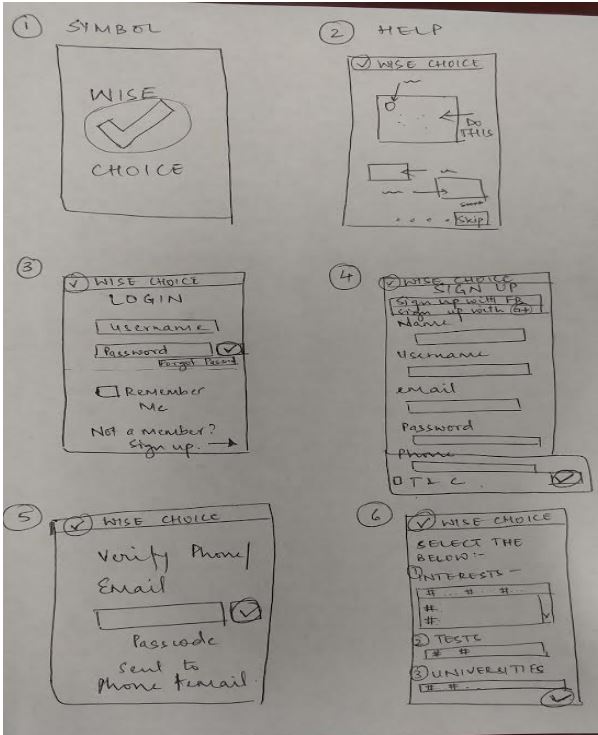 ① SYMBOL
WISE
CHOICE
② HELP
WISE CHOICE
DO
THIS
Skip
③
WISE CHOICE
LOGIN
Username
Password
Remember
Me
Not a member?
Sign up.
④
WISE CHOICE
SIGN UP
Sign up with FB
Sign up with G+
Name
Username
email
Password
Phone
T & C
⑤
WISE CHOICE
Verify Phone/
Email
Passcode
Sent to
Phone & email.
⑥
WISE CHOICE
SELECT THE
BELOW :-
① INTERESTS -
# ... # ... # ...
#
#
② TESTS
# #
③ UNIVERSITIES
# # ...